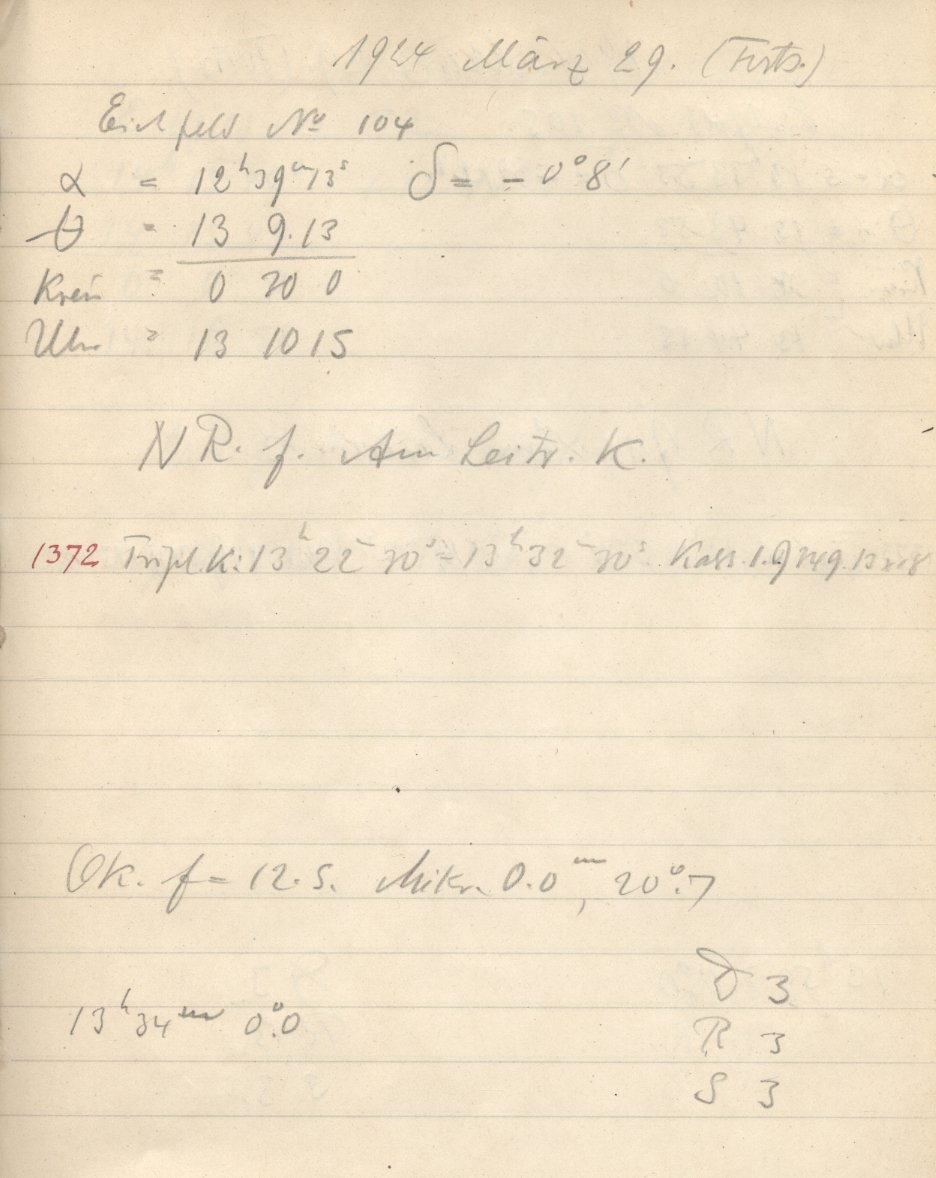 1924 März 29. (Forts.)
Eichfeld No 104
α = 12ʰ39ᵐ13ˢ δ = - 0°8'
θ = 13 9. 13
Kreis = 0 30 0
Uhr = 13 10 15
N R. f. Am Leitr. K.
1372 Tripl. K: 13ʰ 22ᵐ 30ˢ - 13ʰ 32ᵐ 30ˢ. Kass. 1.
Ok. f = 12.5. Mikr. 0.0ᵐᵐ, 20°.7
D 3
13ʰ34ᵐ 0°.0
R 3
S 3